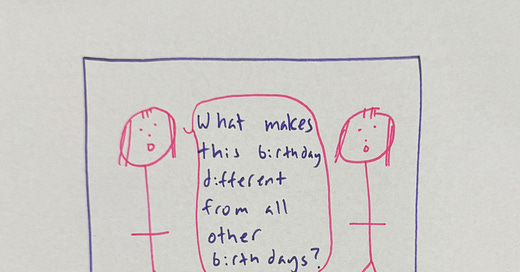 What makes
this birthday
different
from all
other
birthdays?